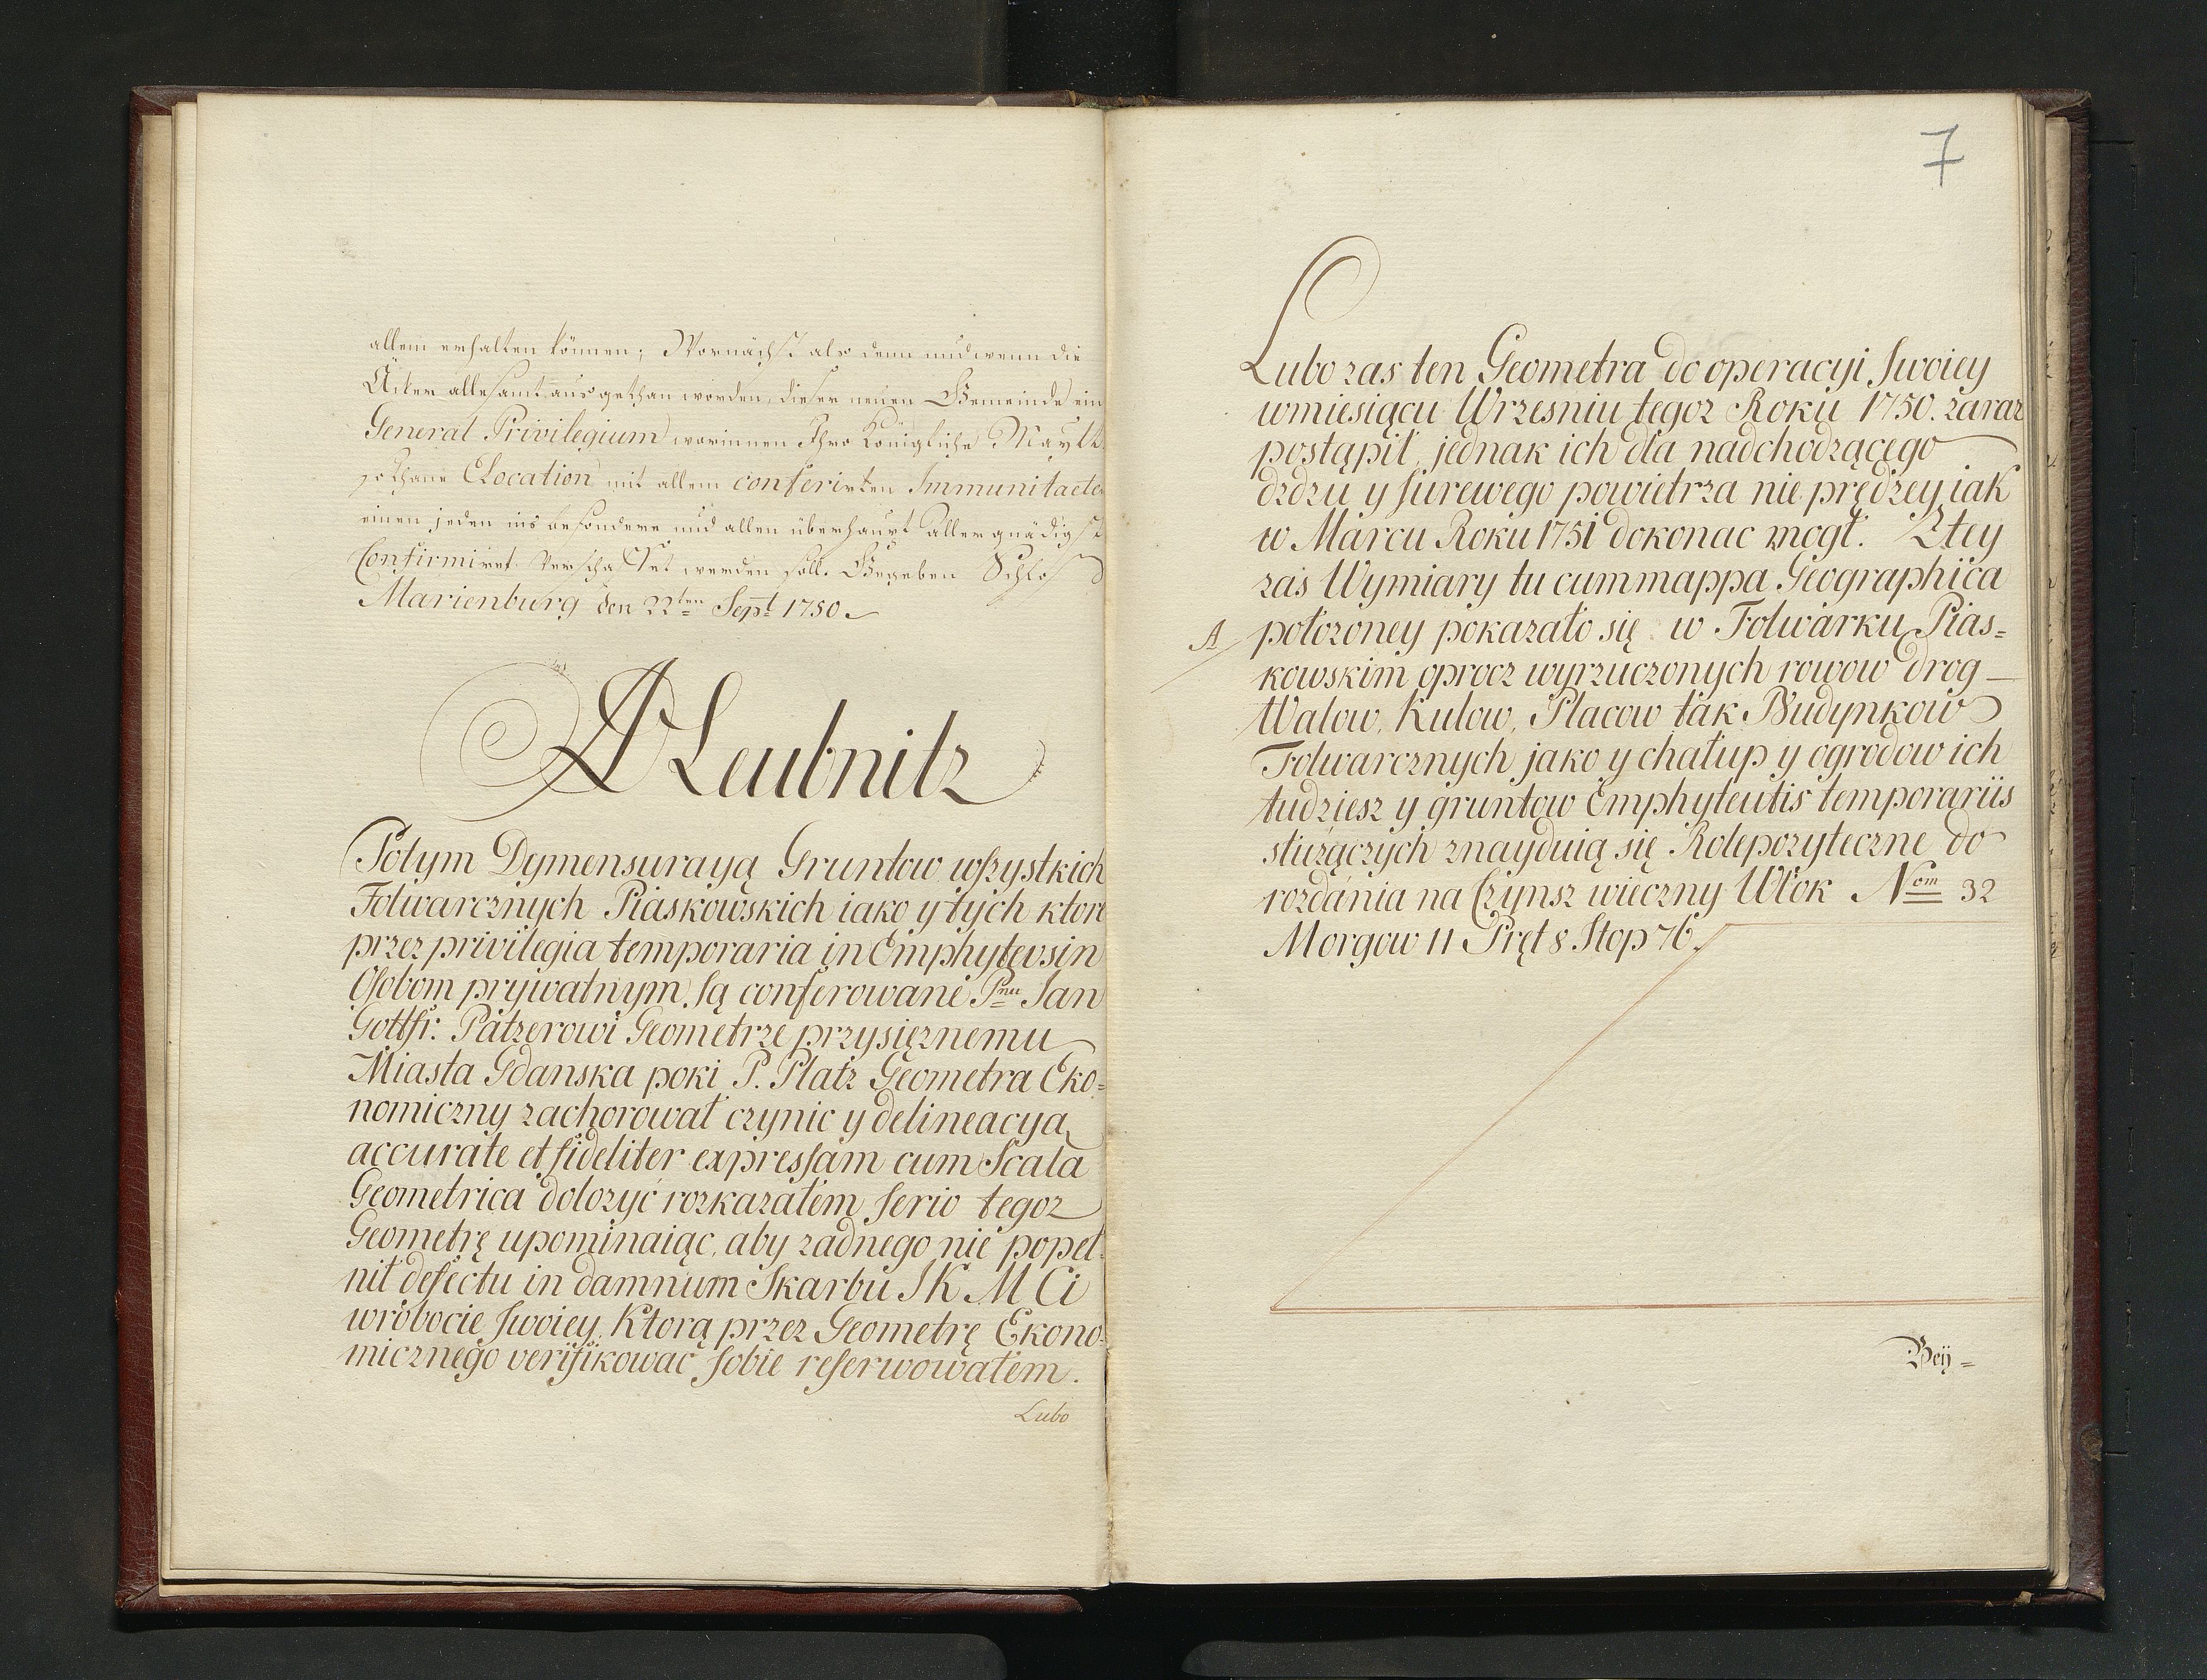 allem erhalten können; Wornächst als denn und wenn die
Äcker allesamt ausgethan worden, dieser neuen Gemeinde ein
General Privilegium worinnen Ihro Königliche Maytt
sothane Location mit allem conferirten Immunitaeten
einen jeden ins besondere und allen überhaupt allergnädigst
Confirmiret verschaffet werden soll. Gegeben Schloß
Marienburg den 22ten Sept 1750.
A Leubnitz
Potym Dymensuracyą Gruntow wszystkich
Folwarcznych Piaskowskich iako y tych ktore
przez privilegia temporaria in Emphytevsin
Osobom prywatnym są conferowane Pnu Jan
Gottfr: Patzerowi Geometrze przysięznemu
Miasta Gdanska poki P. Platz Geometra Eko=
nomiczny zachorował czynic y delineacya
accurate et fideliter expressam cum Scala
Geometrica dolozyć rozkazałem serio tegoz
Geometrę upominaiąc, aby zadnego nie popeł=
nił defectu in damnum Skarbu J K M Ci
wrobocie swoiey, Ktorą przez Geometrę Ekono=
micznego verifikować sobie reserwowałem.
Lubo
7
Lubo zas ten Geometra do operacyi swoiey
wmiesiącu Wrzesniu tegoz Roku 1750. zaraz
postąpił, jednak ich dla nadchodzącego
dzdzu y surewego powietrza nie prędzey iak
w Marcu Roku 1751 dokonac mogł. Ztey
zas Wymiary tu cum mappa Geographica
A
połozoney pokazało się w Folwarku Pias=
kowskim oprocz wyrzuczonych rowow drog
Walow, Kulow, Placow tak Budynkow
Folwarcznych jako y chałup y ogrodow ich
tudziesz y gruntow Emphyteutis temporariis
słuzączych znayduią się Rolepozyteczne do
rozdania na Czynsz wieczny Włok Nom 32
Morgow 11 Pręt 8 Stop 76.
Beÿ=